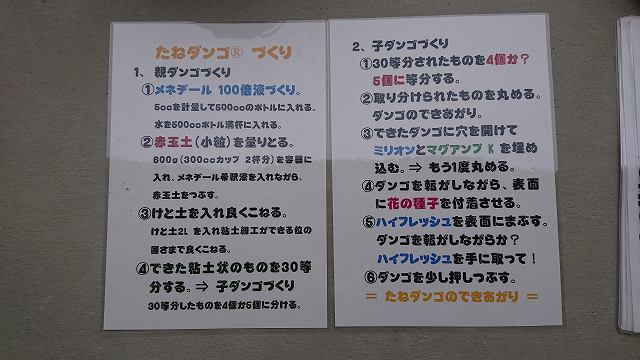 たねダンゴ® づくり
1、 親ダンゴづくり
①メネデール 100倍液づくり。
5ccを計量して500ccのボトルに入れる。
水を500ccボトル満杯に入れる。
②赤玉土（小粒）を量りとる。
600g（300ccカップ 2杯分）を容器に
入れ、メネデール希釈液を入れながら、
赤玉土をつぶす。
③けと土を入れ良くこねる。
けと土2L を入れ粘土細工ができる位の
固さまで良くこねる。
④できた粘土状のものを30等
分する。⇒ 子ダンゴづくり
30等分したものを4個か5個に分ける。
2、子ダンゴづくり
①30等分されたものを4個か？
5個に等分する。
②取り分けられたものを丸める。
ダンゴのできあがり。
③できたダンゴに穴を開けて
ミリオンとマグアンプ K を埋め
込む。⇒ もう1度丸める。
④ダンゴを転がしながら、表面
に花の種子を付着させる。
⑤ハイフレッシュを表面にまぶす。
ダンゴを転がしながらか？
ハイフレッシュを手に取って！
⑥ダンゴを少し押しつぶす。
＝ たねダンゴのできあがり ＝